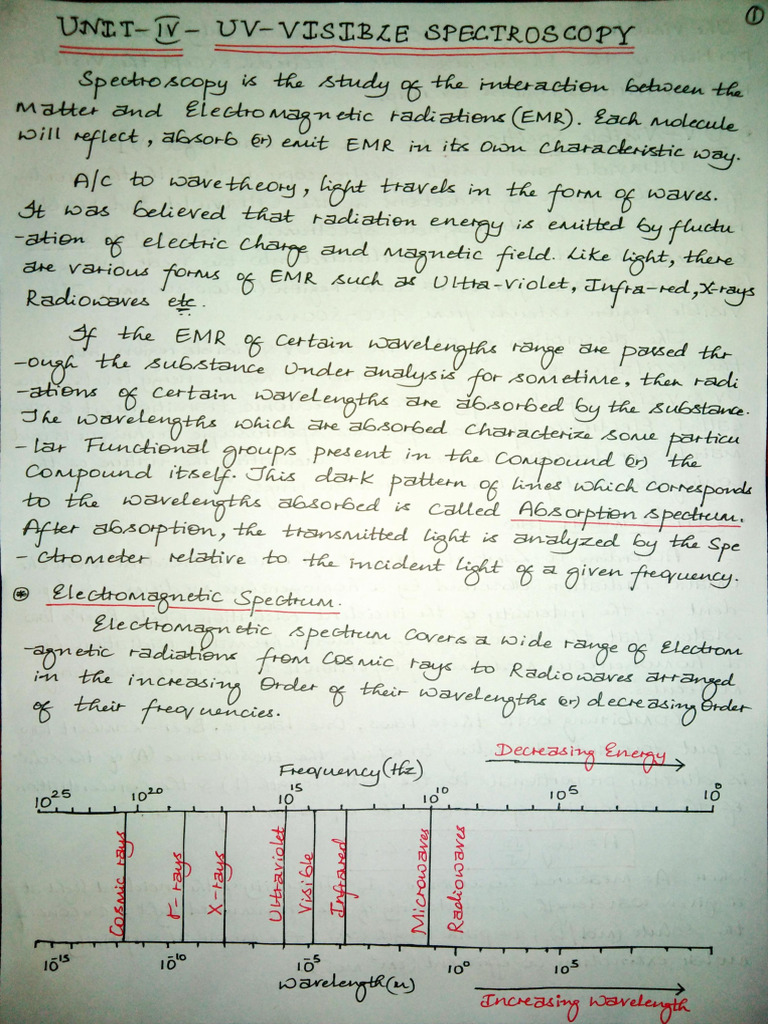 ①
UNIT-IV- UV-VISIBLE SPECTROSCOPY
Spectroscopy is the study of the interaction between the
Matter and Electromagnetic radiations (EMR). Each molecule
will reflect, absorb (or) emit EMR in its own characteristic way.
A/c to wavetheory, light travels in the form of waves.
It was believed that radiation energy is emitted by fluctu
-ation of electric charge and magnetic field. Like light, there
are various forms of EMR such as Ultra-violet, Infra-red, X-rays
Radiowaves etc.
If the EMR of certain wavelengths range are passed thr
-ough the substance under analysis for sometime, then radi
-ations of certain wavelengths are absorbed by the substance.
The wavelengths which are absorbed characterize some particu
-lar Functional groups present in the compound (or) the
compound itself. This dark pattern of lines which corresponds
to the wavelengths absorbed is called Absorption spectrum.
After absorption, the transmitted light is analyzed by the Spe
-ctrometer relative to the incident light of a given frequency.
⊛ Electromagnetic Spectrum.
Electromagnetic spectrum covers a wide range of Electrom
-agnetic radiations from Cosmic rays to Radiowaves arranged
in the increasing order of their wavelengths (or) decreasing order
of their frequencies.
Decreasing Energy
Frequency (Hz)
10²⁵ 10²⁰ 10¹⁵ 10¹⁰ 10⁵ 10⁰
Cosmic rays
γ-rays
X-rays
Ultraviolet
Visible
Infrared
Microwaves
Radiowaves
10⁻¹⁵ 10⁻¹⁰ 10⁻⁵ 10⁰ 10⁵
Wavelength (m)
Increasing Wavelength